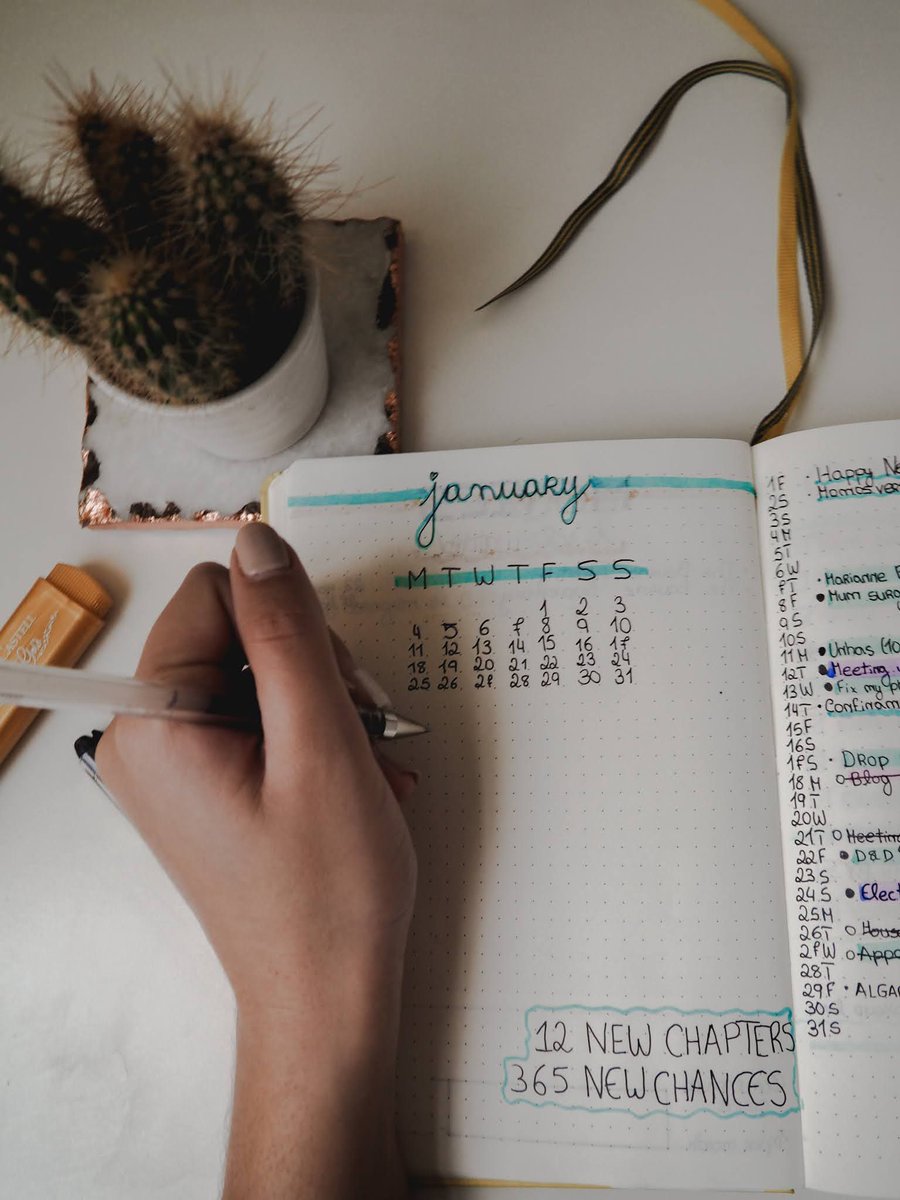 january
M T W T F S S
1 2 3
4 5 6 7 8 9 10
11 12 13 14 15 16 17
18 19 20 21 22 23 24
25 26 27 28 29 30 31
12 NEW CHAPTERS
365 NEW CHANCES
1F • Happy
2S •
3S
4M
5T
6W
7T • Marianne
8F • Mum
9S
10S
11M • Unhas
12T • Meeting
13W • Fix my
14T •
15F
16S
17S • DROP
18M o Blog
19T
20W
21T o
22F • D&D
23S
24S •
25M
26T o
27W o
28T
29F •
30S
31S